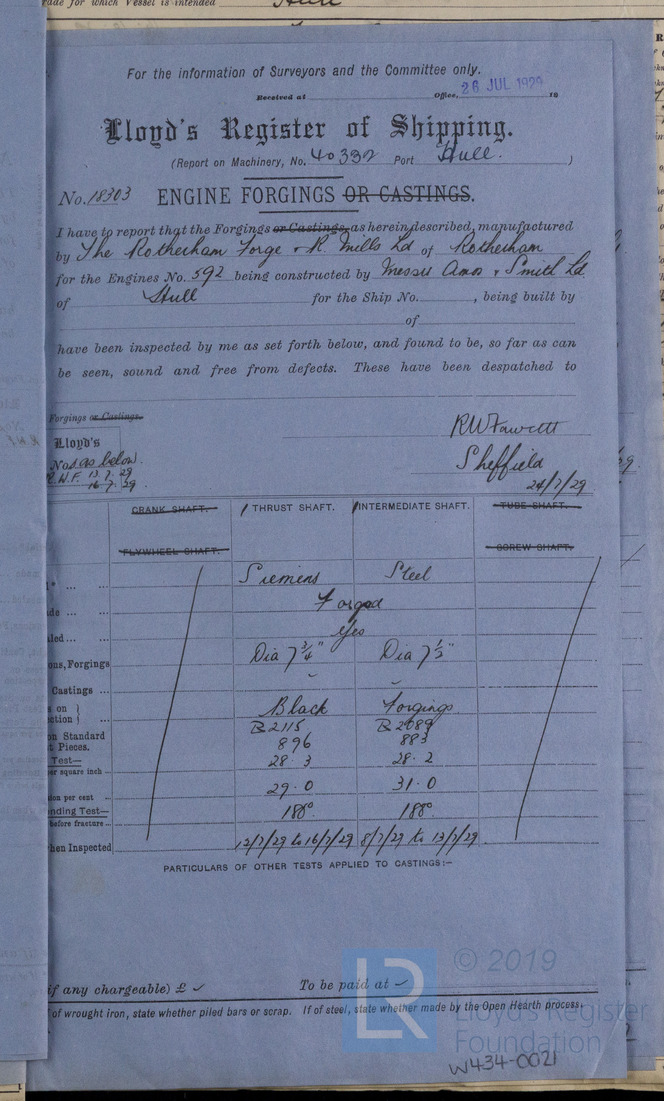 rade for which Vessel is intended Hull
For the information of Surveyors and the Committee only.
Received at Office, 26 JUL 1929 19
Lloyd's Register of Shipping.
(Report on Machinery, No. 40392 Port Hull. )
No. 18303 ENGINE FORGINGS OR CASTINGS.
I have to report that the Forgings or Castings, as herein described, manufactured
by The Rotherham Forge & R. Mills Ld of Rotherham
for the Engines No. 592 being constructed by Messrs Amos & Smith Ld
of Hull for the Ship No. , being built by
of
have been inspected by me as set forth below, and found to be, so far as can
be seen, sound and free from defects. These have been despatched to
Forgings or Castings.
RW Fawcett
Lloyd's
Nos as below.
Sheffield
R.W.F. 13.7.29
16.7.29
24/7/29
CRANK SHAFT. THRUST SHAFT. INTERMEDIATE SHAFT. TUBE SHAFT.
FLYWHEEL SHAFT. SCREW SHAFT.
Siemens Steel
Forged
Yes
ons, Forgings Dia 7 3/4" Dia 7 1/2"
Castings ...
s on
ction Black Forgings.
on Standard B2115 B2089
t Pieces. 896 883
Test— 28.3 28.2
er square inch
ion per cent 29.0 31.0
nding Test— 180° 180°
before fracture
hen Inspected 12/7/29 to 16/7/29 8/7/29 to 13/7/29
PARTICULARS OF OTHER TESTS APPLIED TO CASTINGS:—
if any chargeable) £ To be paid at
of wrought iron, state whether piled bars or scrap. If of steel, state whether made by the Open Hearth process.
LR © 2019
Lloyd's Register
Foundation
W434-0021